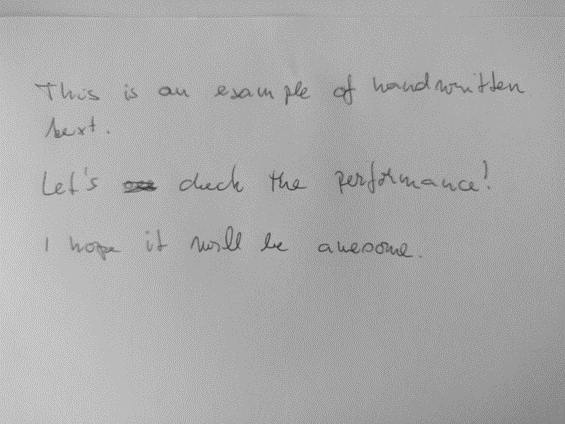 This is an example of handwritten
text.
Let's check the performance!
I hope it will be awesome.